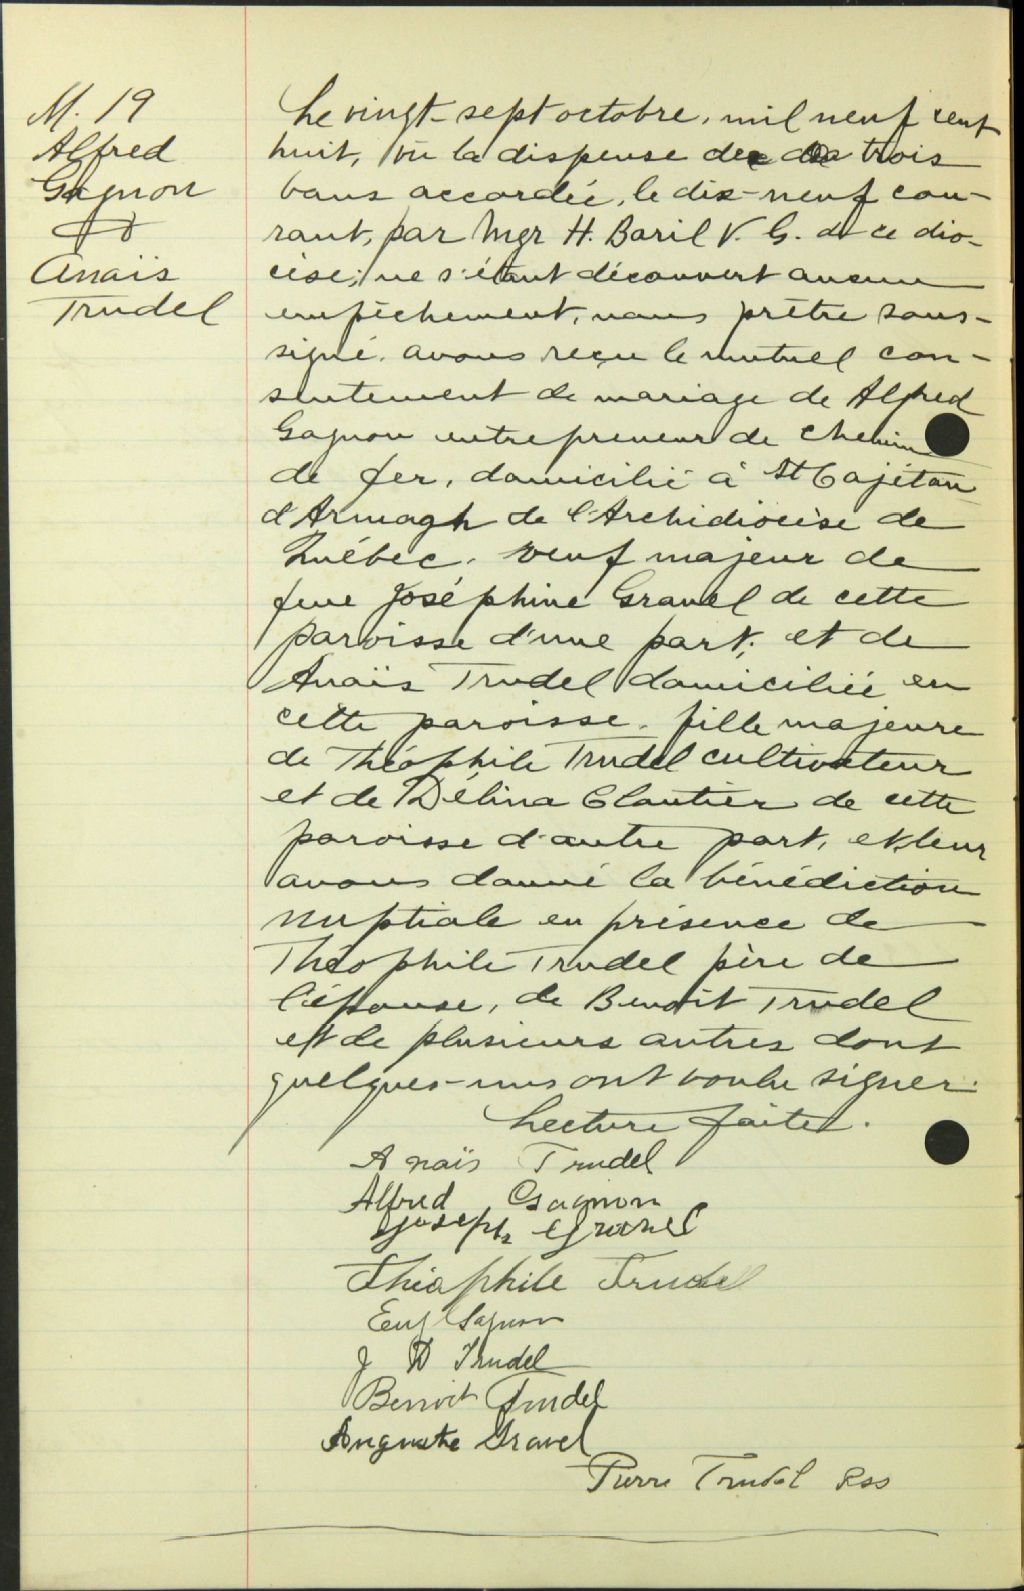 M. 19
Alfred
Gagnon
&
Anaïs
Trudel
Le vingt-sept octobre, mil neuf cent
huit, vu la dispense de trois
bans accordée, le dix-neuf cou-
rant, par Mgr H. Baril V. G. de ce dio-
cèse; ne s'étant découvert aucun
empêchement, nous prêtre sous-
signé, avons reçu le mutuel con-
sentement de mariage de Alfred
Gagnon entrepreneur de chemin
de fer, domicilié à St Cajétan
d'Armagh de l'Archidiocèse de
Québec, veuf majeur de
feue Joséphine Gravel de cette
paroisse d'une part; et de
Anaïs Trudel domiciliée en
cette paroisse, fille majeure
de Théophile Trudel cultivateur
et de Délina Cloutier de cette
paroisse d'autre part, et leur
avons donné la bénédiction
nuptiale en présence de
Théophile Trudel père de
l'épouse, de Benoit Trudel
et de plusieurs autres dont
quelques-uns ont voulu signer.
Lecture faite.
Anaïs Trudel
Alfred Gagnon
Joseph Gravel
Théophile Trudel
Eug Gagnon
J D Trudel
Benoit Trudel
Auguste Gravel
Pierre Trudel